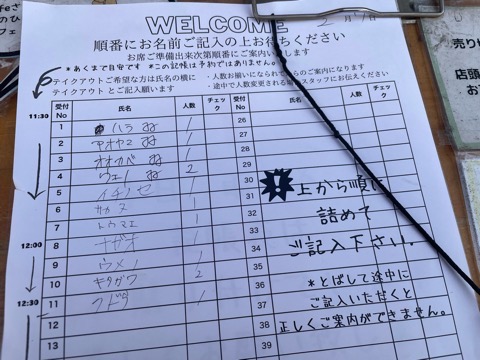 WELCOME
2月7日
順番にお名前ご記入の上お待ちください
お席ご準備出来次第順番にご案内いたします
*あくまで目安です *この記帳は予約ではありません
テイクアウトご希望な方は氏名の横に
テイクアウト とご記入願います
・人数お揃いになられて
のご案内になります
・途中で人数変更される場
スタッフにお伝えください
受付No 氏名 人数 チェック 受付No 氏名 人数 チェック
11:30
1 ハラ 1
2 アオヤマ 1
3 オオカベ 1
4 ウエノ 2
5 イチノセ 1
6 サカヌ 1
7 トウマエ 1
12:00
8 ナガオ 1
9 ウメノ 1
10 キタガワ 2
12:30
11 クドウ 1
12
13
26
27
28
29
30
31
32
33
34
35
36
37
38
39
!
上から順に
詰めて
ご記入下さい。
*とばして途中に
ご記入いただくと
正しくご案内ができません。
売り
店頭